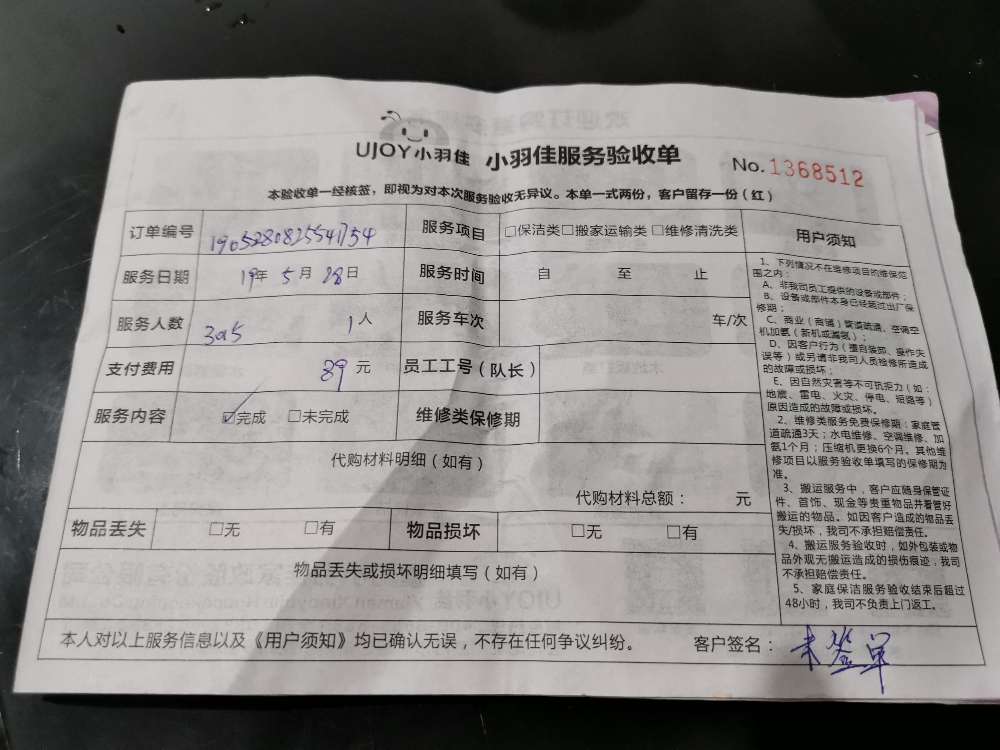 UJOY小羽佳 小羽佳服务验收单
No.1368512
本验收单一经核签，即视为对本次服务验收无异议。本单一式两份，客户留存一份（红）
订单编号 1905280825541754 服务项目 □保洁类□搬家运输类□维修清洗类
服务日期 19年 5月 28日 服务时间 自 至 止
服务人数 305 1人 服务车次 车/次
支付费用 89 元 员工工号（队长）
服务内容 ☑完成 □未完成 维修类保修期
代购材料明细（如有）
代购材料总额： 元
物品丢失 □无 □有 物品损坏 □无 □有
物品丢失或损坏明细填写（如有）
用户须知
1、下列情况不在维修项目的维保范
围之内：
A、非我司员工提供的设备或部件；
B、设备或部件本身已经超过出厂保
修期；
C、商业（商铺）管道疏通、空调空
机加氨（新机或漏氨）；
D、因客户行为（擅自装卸、操作失
误等）或另请非我司人员检修所造成
的故障或损坏；
E、因自然灾害等不可抗拒力（如：
地震、雷电、火灾、停电、短路等）
原因造成的故障或损坏。
2、维修类服务免费保修期：家庭管
道疏通3天；水电维修、空调维修、加
氨1个月；压缩机更换6个月。其他维
修项目以服务验收单填写的保修期为
准。
3、搬运服务中，客户应随身保管证
件、首饰、现金等贵重物品并看管好
搬运的物品。如因客户造成的物品丢
失/损坏，我司不承担赔偿责任。
4、搬运服务验收时，如外包装或物
品外观无搬运造成的损伤痕迹，我司
不承担赔偿责任。
5、家庭保洁服务验收结束后超过
48小时，我司不负责上门返工。
本人对以上服务信息以及《用户须知》均已确认无误，不存在任何争议纠纷。 客户签名： 未签单